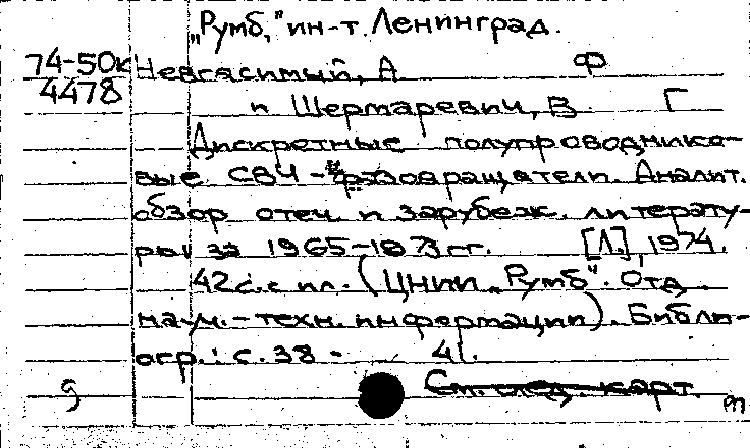 „Румб," ин-т. Ленинград.
74-50к Невгасимый, А Ф
4478 и Шермаревич, В Г
Дискретные полупроводнико-
вые СВЧ - фазовращатели. Аналит.
обзор отеч. и зарубеж. литерату-
ры за 1965-1973 гг. [Л.], 1974.
42 с. с ил. (ЦНИИ „Румб". Отд.
науч.-техн. информации). Библи-
огр.: с. 38 - 41.
См. след. карт.